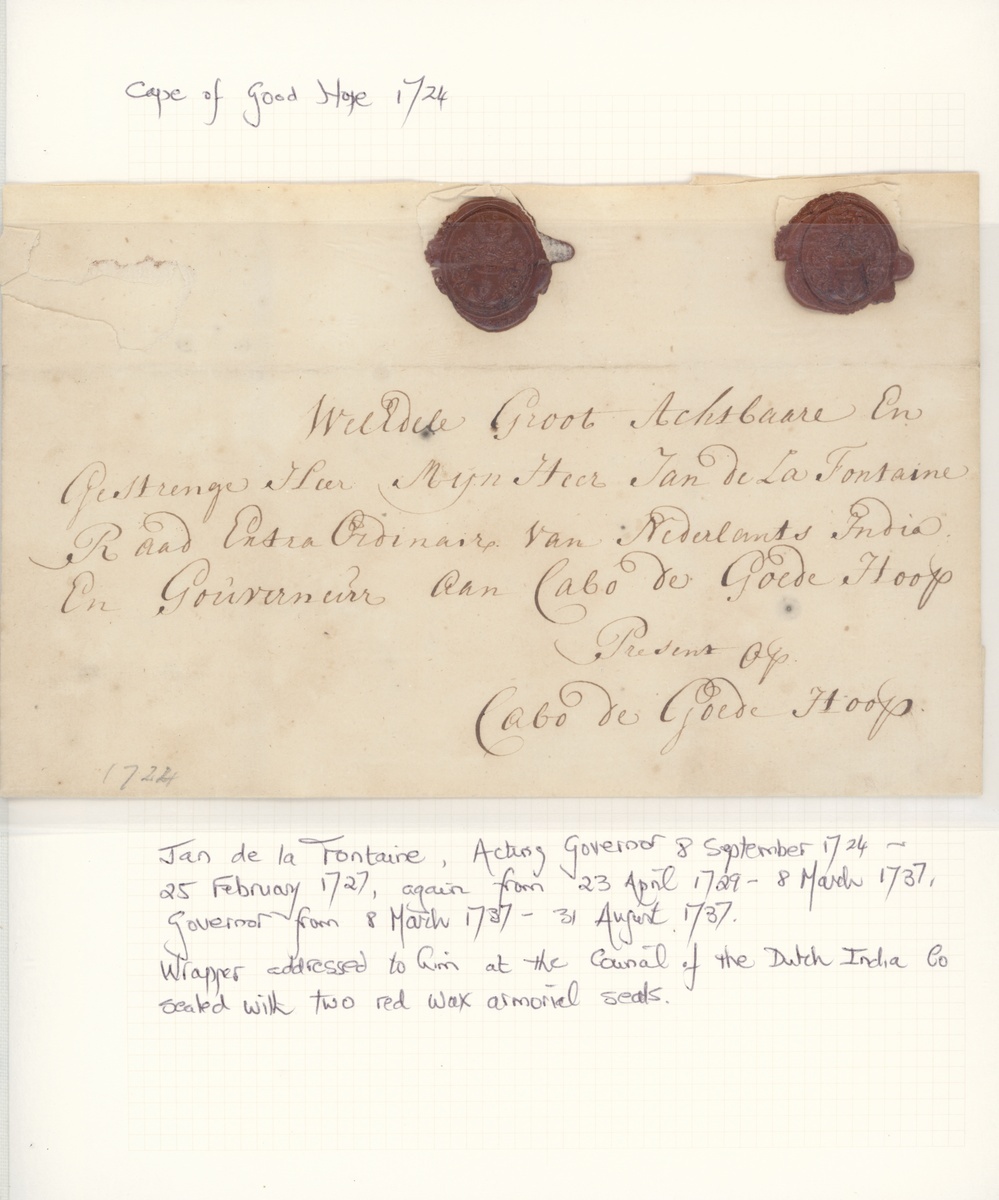 Cape of Good Hope 1724
WelEdele Groot Achtbaare En
Gestrenge Heer Mijn Heer Jan de La Fontaine
Raad Extra Ordinair van Nederlants India.
En Gouverneur aan Cabo de Goede Hoop
Present op
Cabo de Goede Hoop.
1724
Jan de la Fontaine, Acting Governor 8 September 1724 -
25 February 1727, again from 23 April 1729 - 8 March 1737,
Governor from 8 March 1737 - 31 August 1737.
Wrapper addressed to him at the Council of the Dutch India Co
sealed with two red wax armorial seals.